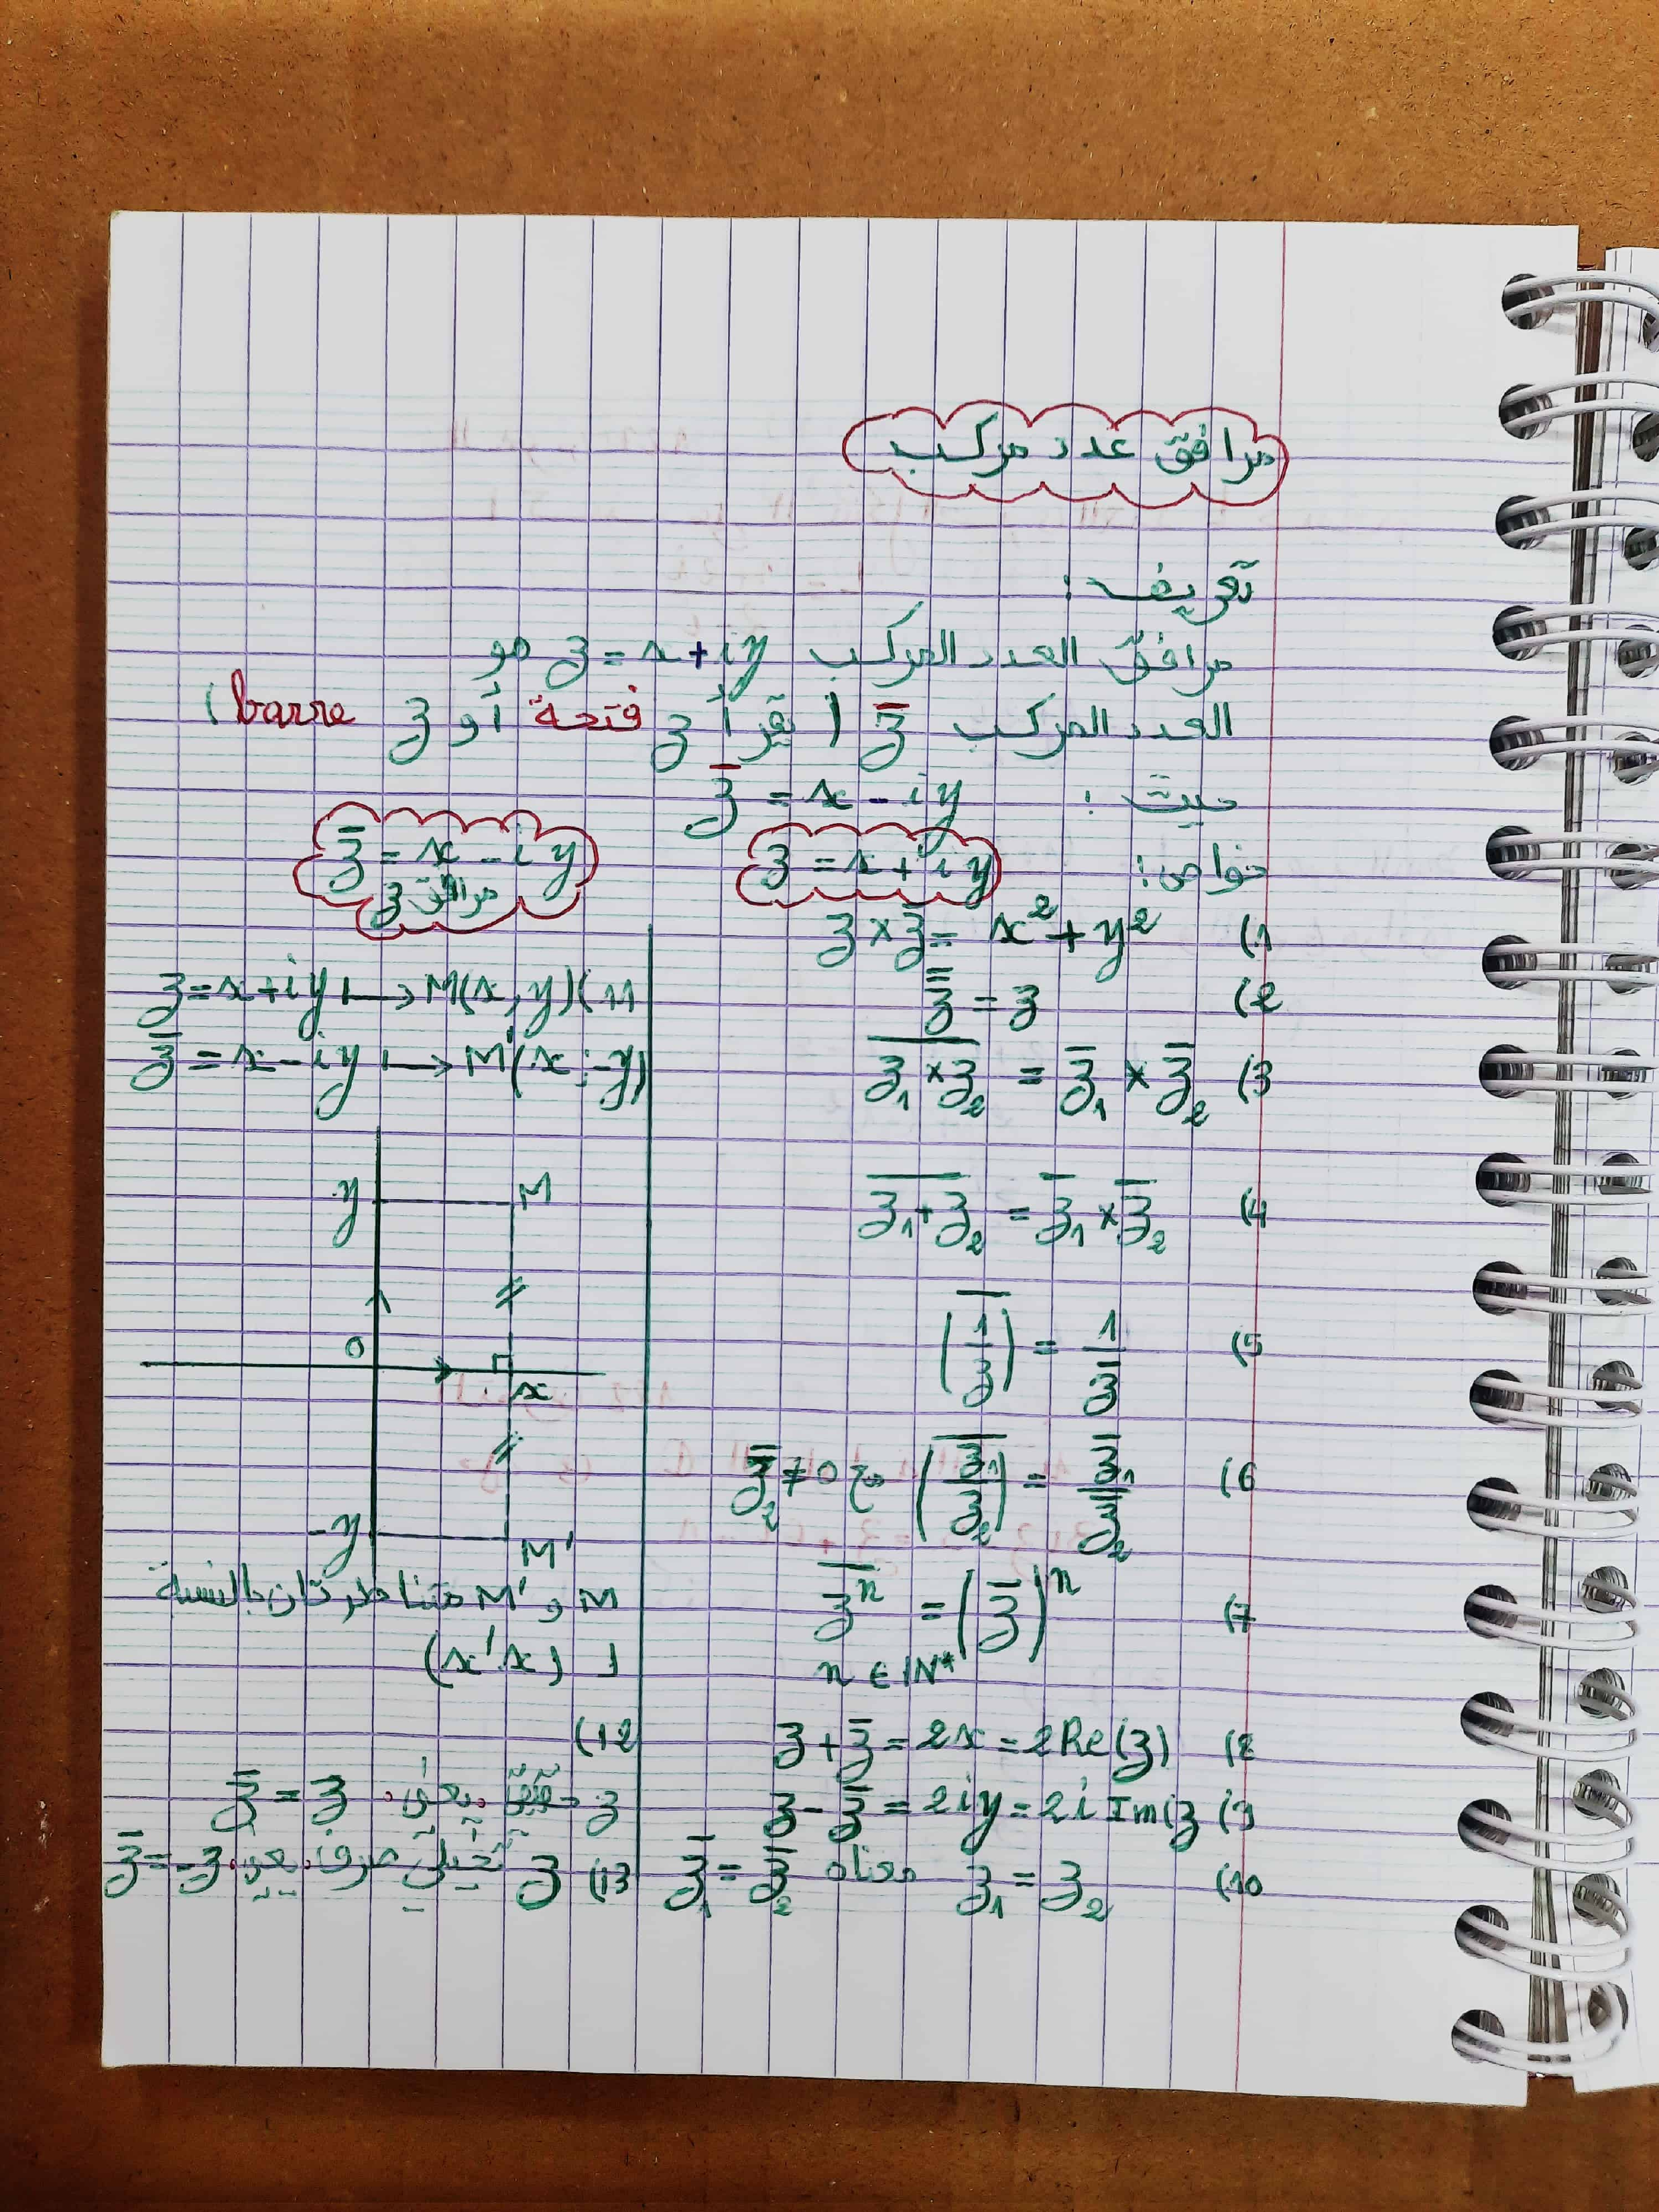 مرافق عدد مركب
تعريف :
مرافق العدد المركب z = x + iy هو
العدد المركب z̄ ( يقرأ z فتحة أو z barre )
حيث : z̄ = x - iy
خواص : z = x + iy
z̄ = x - iy
مرافق z
1) z × z̄ = x² + y²
2) z̿ = z
3) \overline{z₁ × z₂} = z̄₁ × z̄₂
4) \overline{z₁ + z₂} = z̄₁ × z̄₂
5) \overline{(1/z)} = 1/z̄
6) \overline{(z₁/z₂)} = z̄₁/z̄₂ مع z̄₂ ≠ 0
7) \overline{zⁿ} = (z̄)ⁿ
n ∈ IN*
8) z + z̄ = 2x = 2Re(z)
9) z - z̄ = 2iy = 2i Im(z
10) z₁ = z₂ معناه z̄₁ = z̄₂
11) z = x + iy ⟼ M(x, y)
z̄ = x - iy ⟼ M'(x ; -y)
y M
0
x
-y
M'
M و M' متناظرتان بالنسبة
ل (x'x)
12)
z حقيقي يعني z̄ = z
13) z تخيلي صرف يعني z̄ = -z